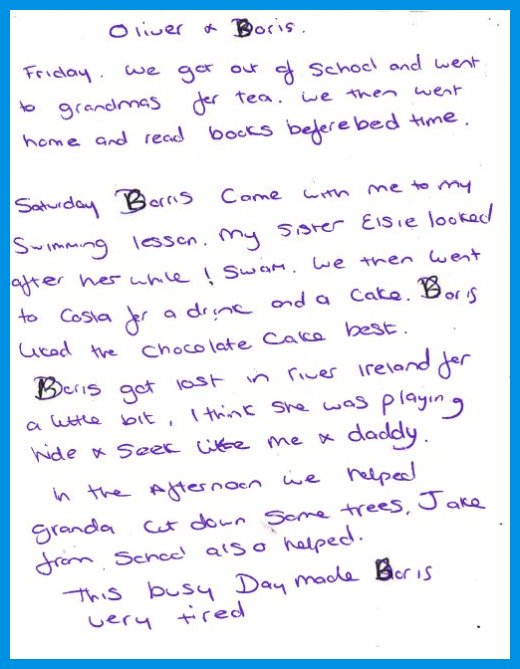 Oliver & Boris.
Friday. we got out of school and went
to grandmas for tea. we then went
home and read books before bed time.
Saturday Borris Came with me to my
Swimming lesson. my sister Elsie looked
after her while I swam. we then went
to Costa for a drink and a cake. Boris
liked the chocolate cake best.
Boris got lost in river ireland for
a little bit, I think she was playing
hide & seek like me & daddy.
in the Afternoon we helped
granda cut down some trees, Jake
from school also helped.
This busy Day made Boris
very tired